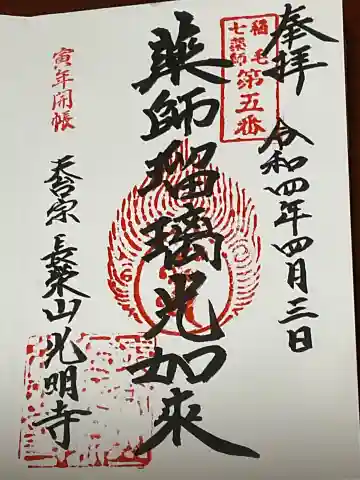 奉拝
令和四年四月三日
稲毛
七薬師
第五番
薬師瑠璃光如来
寅年開帳
天台宗 長栄山光明寺